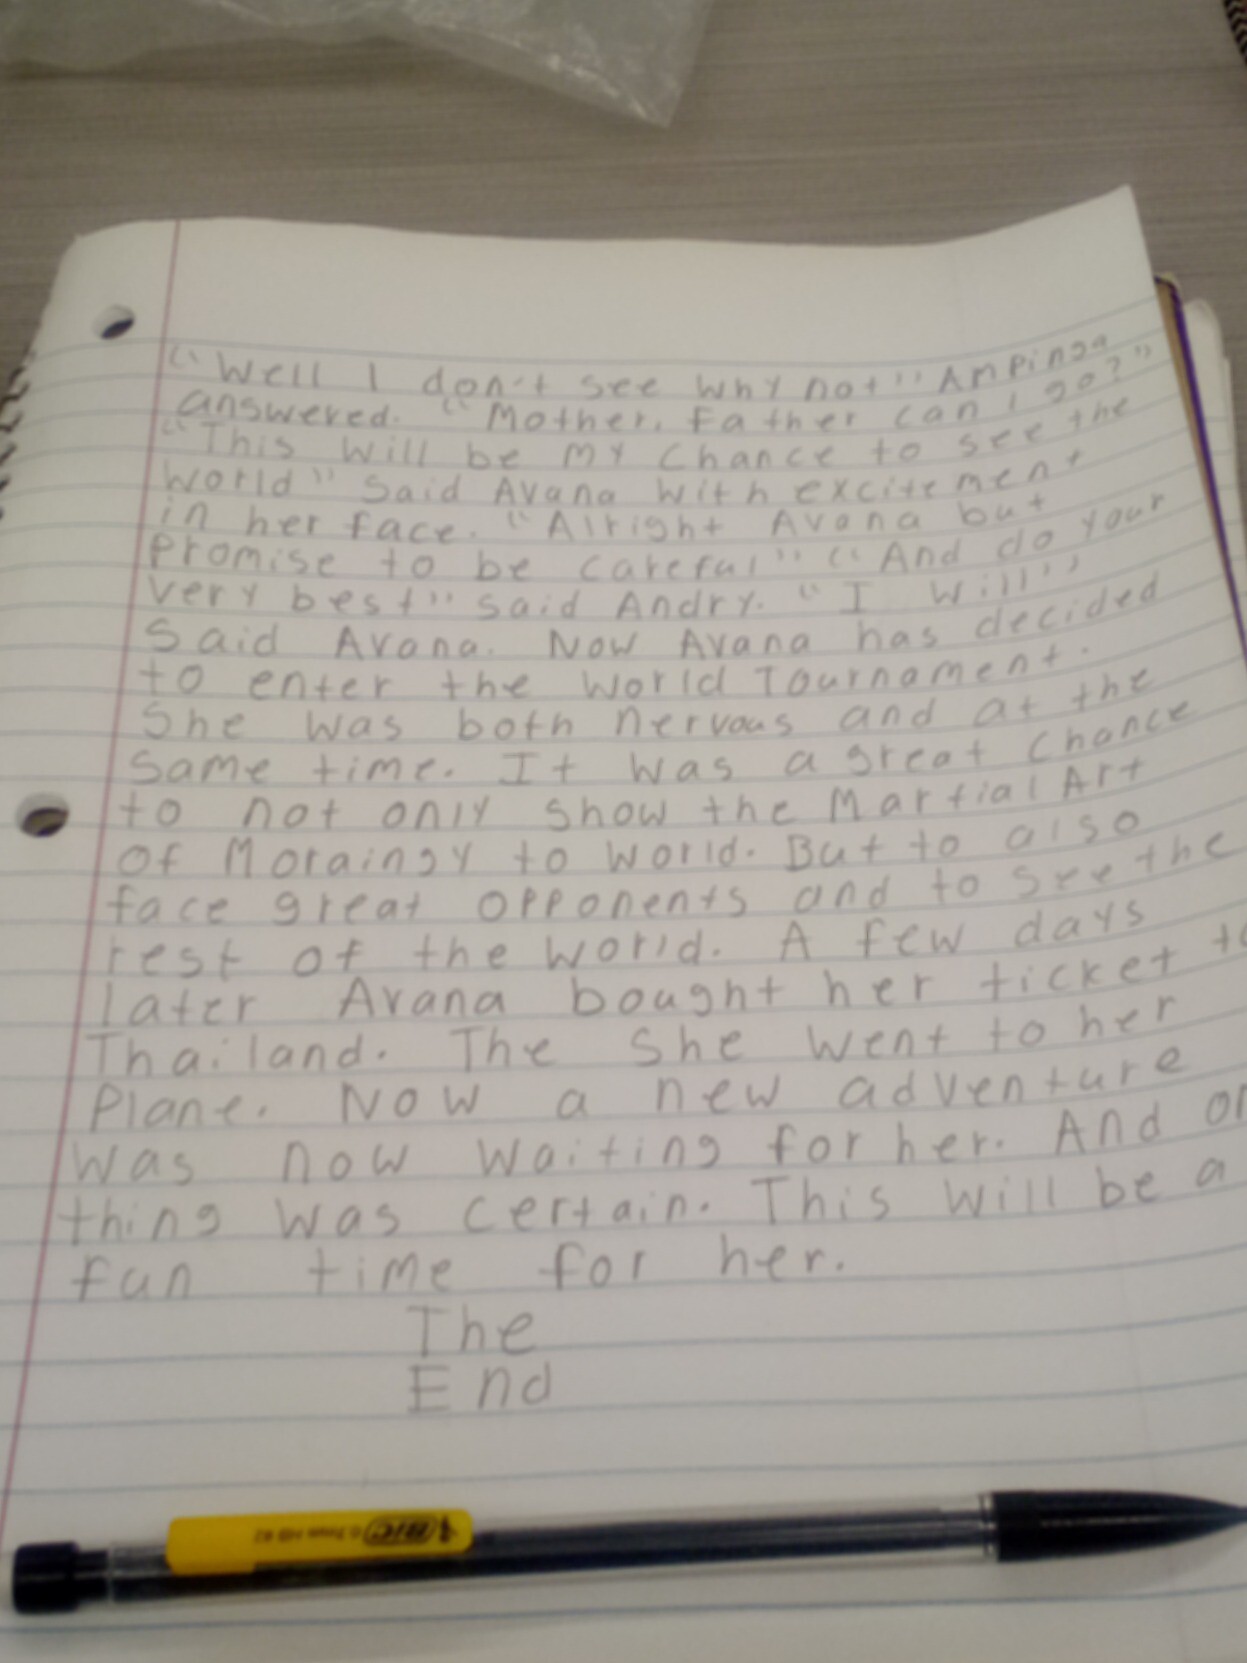 "Well I don't see why not" Ampinga
answered. "Mother, Father can I go?"
"This will be my chance to see the
world" said Avana with excitement
in her face. "Alright Avana but
promise to be careful" "And do your
very best" said Andry. "I will"
said Avana. Now Avana has decided
to enter the World Tournament.
She was both nervous and at the
same time. It was a great chance
to not only show the Martial Art
of Moraingy to world. But to also
face great opponents and to see the
rest of the world. A few days
later Avana bought her ticket to
Thailand. The she went to her
Plane. Now a new adventure
was now waiting for her. And on
thing was certain. This will be a
fun time for her.
The
End
BIC